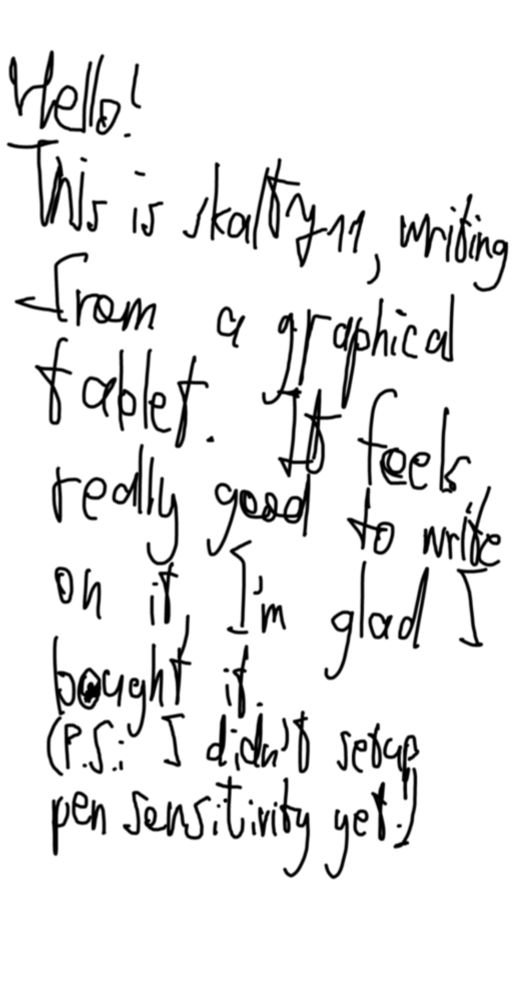 Hello!
This is skalty11, writing
from a graphical
tablet. It feels
really good to write
on it, I'm glad I
bought it.
(P.S.: I didn't setup
pen sensitivity yet!)